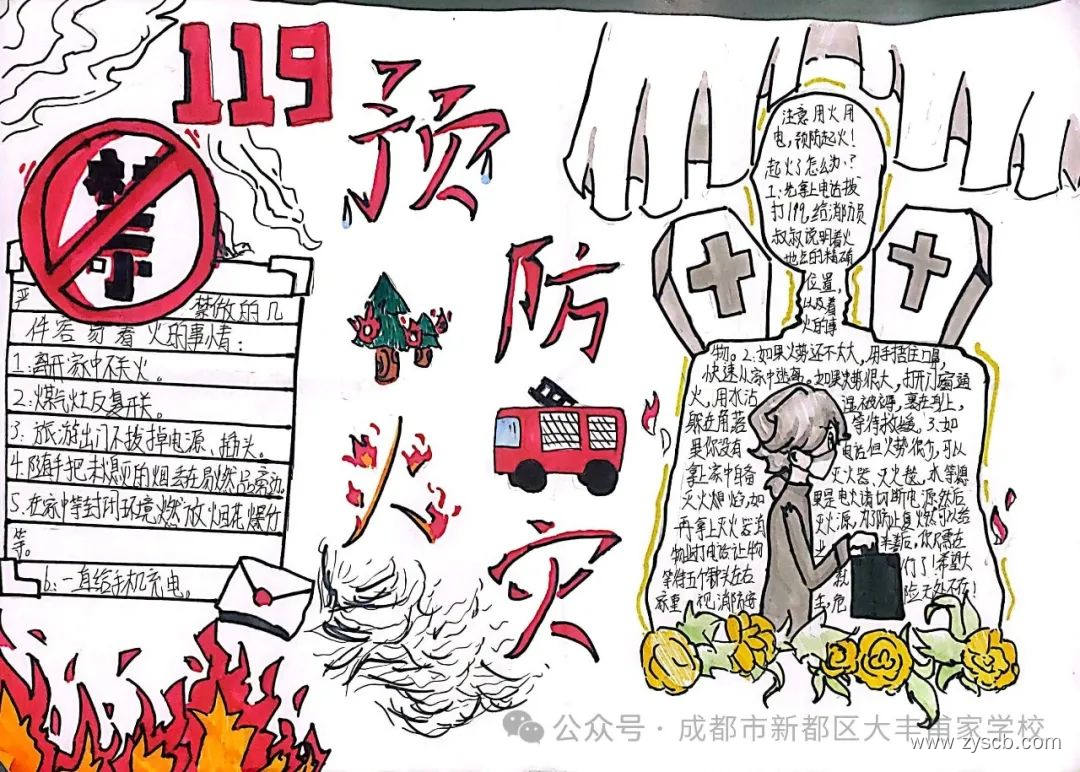 119
预
防
火
灾
禁
严 禁做的几
件容易着火的事情:
1:离开家中不关火。
2:煤气灶反复开关。
3:旅游出门不拔掉电源、插头。
4.随手把未熄灭的烟丢在易燃品旁边。
5.在家中等封闭环境燃放烟花爆竹
等。
6:一直给手机充电。
注意用火用
电,预防起火!
起火了怎么办?
1:先拿上电话拔
打119,给消防员
叔叔说明着火
地点的精确
位置,
以及着
火的事
物。2.如果火势还不太大,用手捂住口鼻,
快速从家中逃离。如果火势很大,打开门窗通
火,用水沾 湿被褥,裹在身上,
躲在角落 等待救援。3.如
果你没有 电话但火势很小,可以
拿上家中自备 灭火器,灭火毯,水等
再拿上灭火器
物业打电话让物
等待
公众号·成都市新都区大丰甫家学校
www.zyscb.com